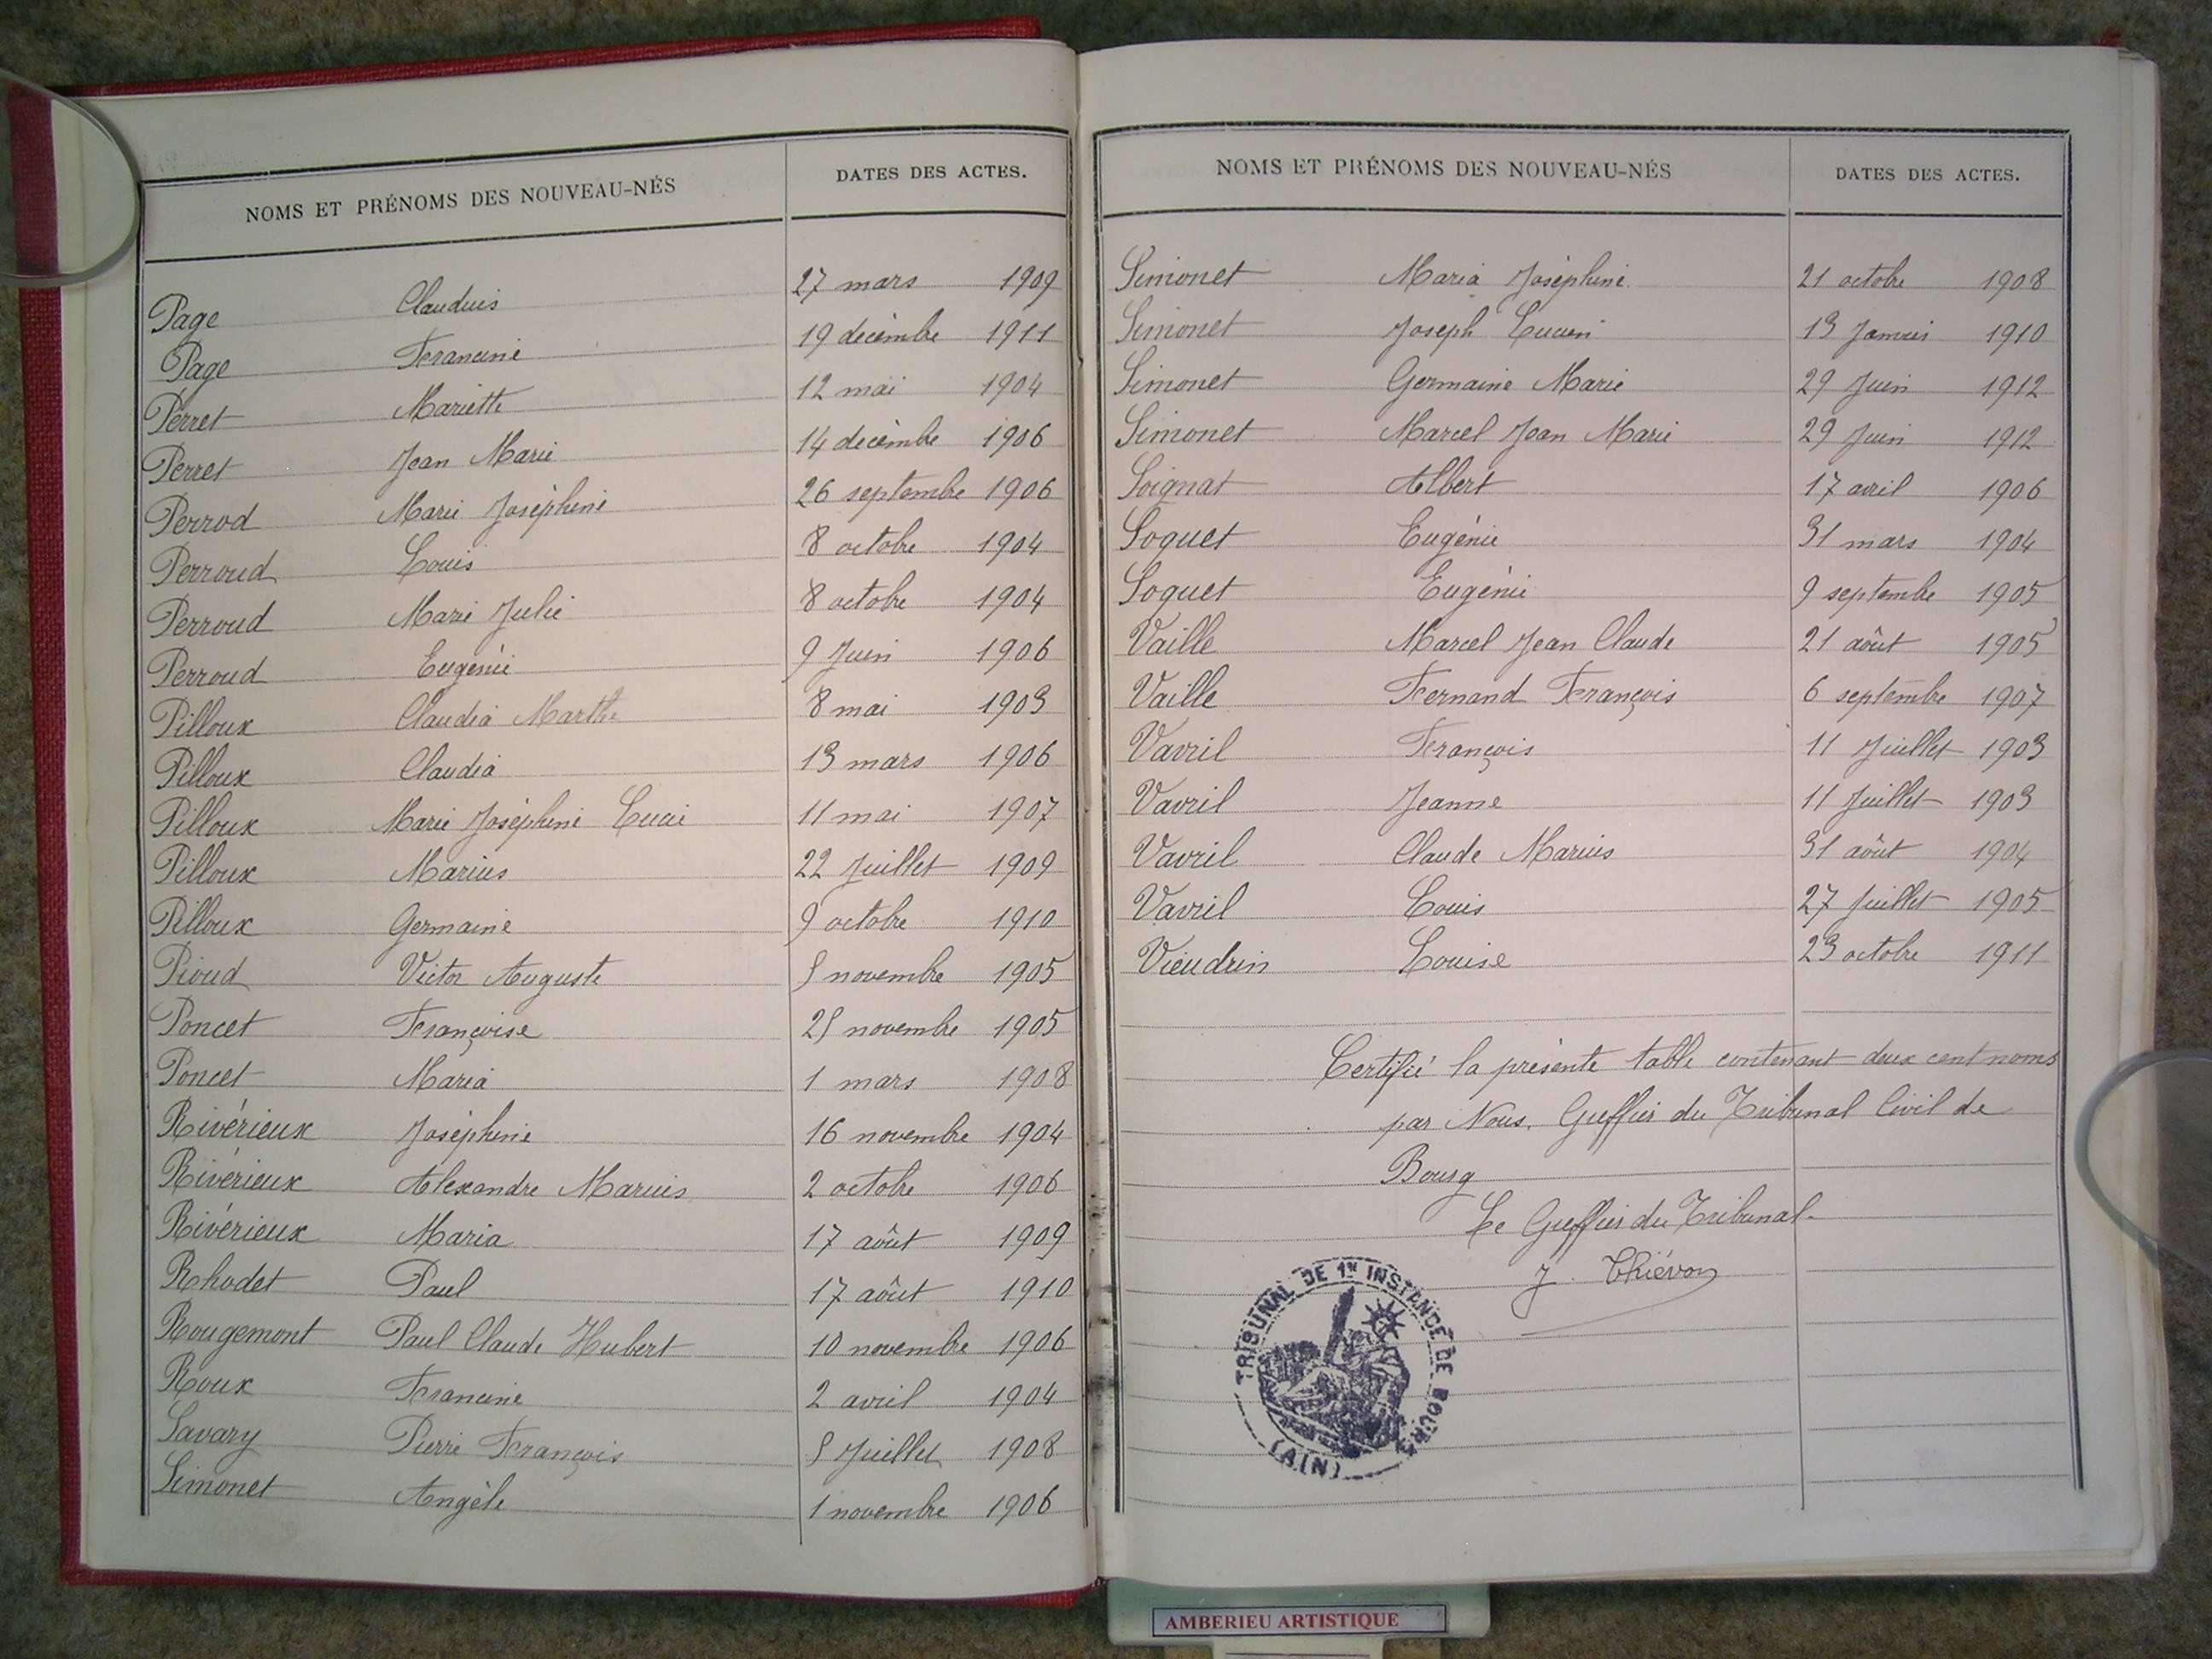 NOMS ET PRÉNOMS DES NOUVEAU-NÉS DATES DES ACTES.
Page Claudius 27 mars 1909
Page Francine 19 décembre 1911
Perret Mariette 12 mai 1904
Perret Jean Marie 14 décembre 1906
Perrod Marie Joséphine 26 septembre 1906
Perroud Louis 8 octobre 1904
Perroud Marie Julie 8 octobre 1904
Perroud Eugénie 9 Juin 1906
Pilloux Claudia Marthe 8 mai 1903
Pilloux Claudia 13 mars 1906
Pilloux Marie Joséphine Lucie 11 mai 1907
Pilloux Marius 22 Juillet 1909
Pilloux Germaine 9 octobre 1910
Pioud Victor Auguste 5 novembre 1905
Poncet Françoise 25 novembre 1905
Poncet Maria 1 mars 1908
Rivérieux Joséphine 16 novembre 1904
Rivérieux Alexandre Marius 2 octobre 1906
Rivérieux Maria 17 août 1909
Rhodet Paul 17 août 1910
Rougemont Paul Claude Hubert 10 novembre 1906
Roux Francine 2 avril 1904
Savary Pierre François 5 Juillet 1908
Simonet Angèle 1 novembre 1906
NOMS ET PRÉNOMS DES NOUVEAU-NÉS DATES DES ACTES.
Simonet Maria Joséphine 21 octobre 1908
Simonet Joseph Lucien 13 Janvier 1910
Simonet Germaine Marie 29 Juin 1912
Simonet Marcel Jean Marie 29 Juin 1912
Soignat Albert 17 avril 1906
Soquet Eugénie 31 mars 1904
Soquet Eugénie 9 septembre 1905
Vaille Marcel Jean Claude 21 août 1905
Vaille Fernand François 6 septembre 1907
Vavril François 11 Juillet 1903
Vavril Jeanne 11 Juillet 1903
Vavril Claude Marius 31 août 1904
Vavril Louis 27 Juillet 1905
Vieudrin Louise 23 octobre 1911
Certifié la présente table contenant deux cent noms
par Nous, Greffier du Tribunal Civil de
Bourg
Le Greffier du Tribunal.
J. Thiévon
TRIBUNAL DE 1re INSTANCE DE BOURG
(AIN)
AMBERIEU ARTISTIQUE